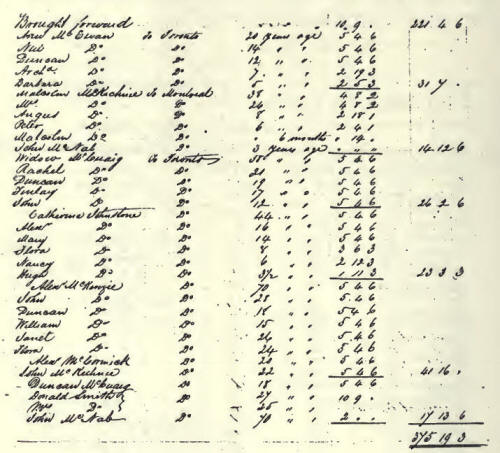 Brought forward 10 9 . 221 4 6
Ann McEwan to Toronto 20 years age 5 4 6
Neil Do Do 14 " " 5 4 6
Duncan Do Do 12 " " 5 4 6
Archd Do Do 7 " " 2 19 3
Barbara Do Do 5 " " 2 5 3 31 7 .
Malcolm McKechnie to Montreal 38 " " 4 8 2
Mrs Do Do 26 " " 4 8 2
Angus Do Do 8 " " 2 18 1
Peter Do Do 6 " " 2 4 1
Malcolm Do Do 6 months . 14 .
John McNab Do 3 years age " " " 14 12 6
Widow McCuaig to Toronto 58 " " 5 4 6
Rachel Do Do 21 " " 5 4 6
Duncan Do Do 19 " " 5 4 6
Finlay Do Do 17 " " 5 4 6
John Do Do 12 " " 5 4 6 26 2 6
Catherine Johnstone Do 44 " " 5 4 6
Alexr Do Do 16 " " 5 4 6
Mary Do Do 14 " " 5 4 6
Flora Do Do 8 " " 3 6 3
Nancy Do Do 6 " " 2 12 3
Hugh Do Do 3/2 " " 1 11 3 23 3 3
Alexr McKenzie Do 70 " " 5 4 6
John Do Do 28 " " 5 4 6
Duncan Do Do 18 " " 5 4 6
William Do Do 15 " " 5 4 6
Janet Do Do 26 " " 5 4 6
Flora Do Do 24 " " 5 4 6
Alexr McCormick Do 25 " " 5 4 6
John McKechnie Do 22 " " 5 4 6 41 16 .
Duncan McCuaig Do 18 " " 5 4 6
Donald Smith Do 27 " " 10 9 .
Mrs Do 25 " "
John McNab Do 70 " " 2 . . 17 13 6
375 19 3